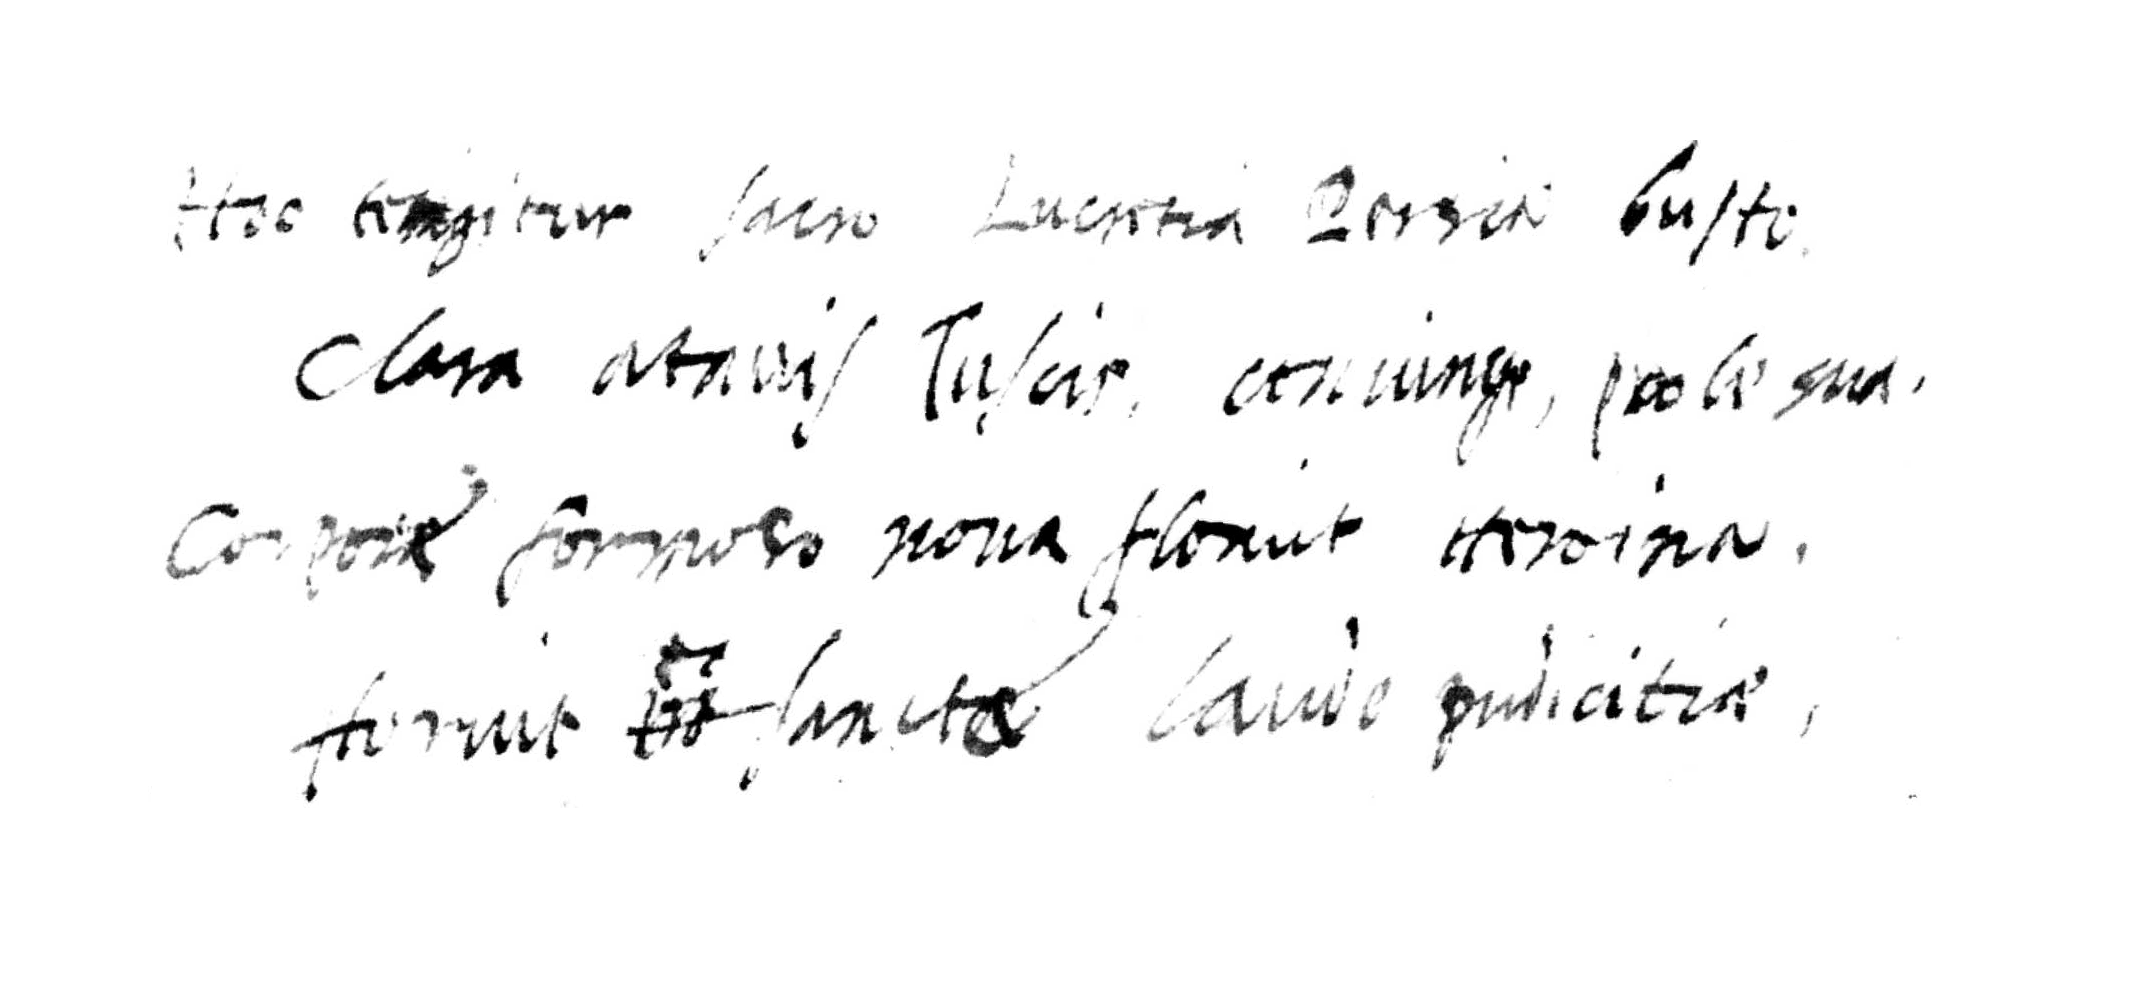 Hoc tegitur sacro Lucretia Persia busto.
Clara atauis Tuscis, coniuinge, prole sua.
Corpore formoso noua floruit Heroina.
floruit et sanctæ laude pudicitiæ,